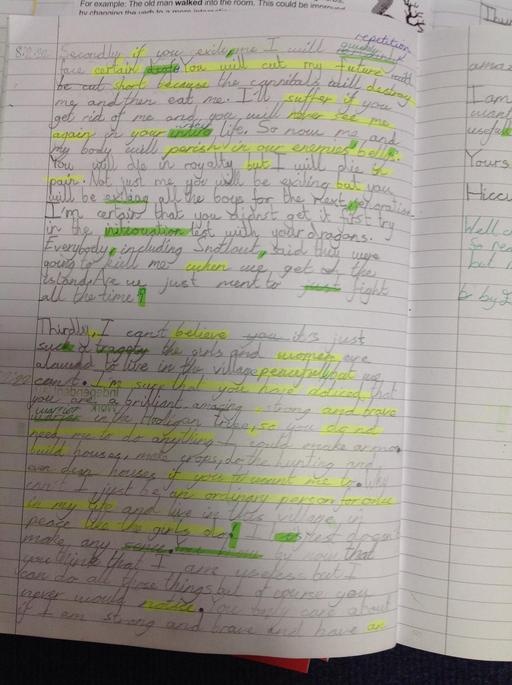 For example: The old man walked into the room. This could be
by changing the verb to a more
repetition
Secondly if you exile me I will
face certain death You will cut my future
be cut short because the cannibals will destroy
me and then eat me. I'll suffer if you
get rid of me and you will never see me
again in your life. So now me and
my body will perish in our enemies
You will die in royalty but I will die in
pain. Not just me you will be exiling but you
will be exiling all the boys for the next generation
I'm certain that you didnst get it first try
in the test with your dragons.
Everybody, including Snotlout, said they were
going to kill me when we get on the
island. Are we just ment to just fight
all the time?
Thirdly, I can't believe you it's just
such a the girls and women are
alawed to live in the village but we
can't. I'm sure that you have noticed that
you are a brilliant, amazing, strong and brave
warrior in the Hooligan tribe, so you do not
need me to do anything. I could make armor,
build houses, make crops, do the hunting and
even clean houses if you want me to. Why
can't I just be an ordinary person for once
in my life and live in this village in
peace like the girls do! I doesn't
make any by now that
you think that I am useless but I
can do all those things but of course you
never would notice. You only care about
if I am strong and brave and have an
amaz
I am
want
useful
Yours
Hiccu
Well
So
but